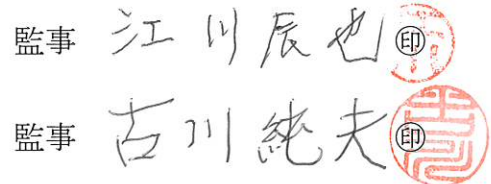 監事 江川辰也 ㊞
監事 古川純夫 ㊞